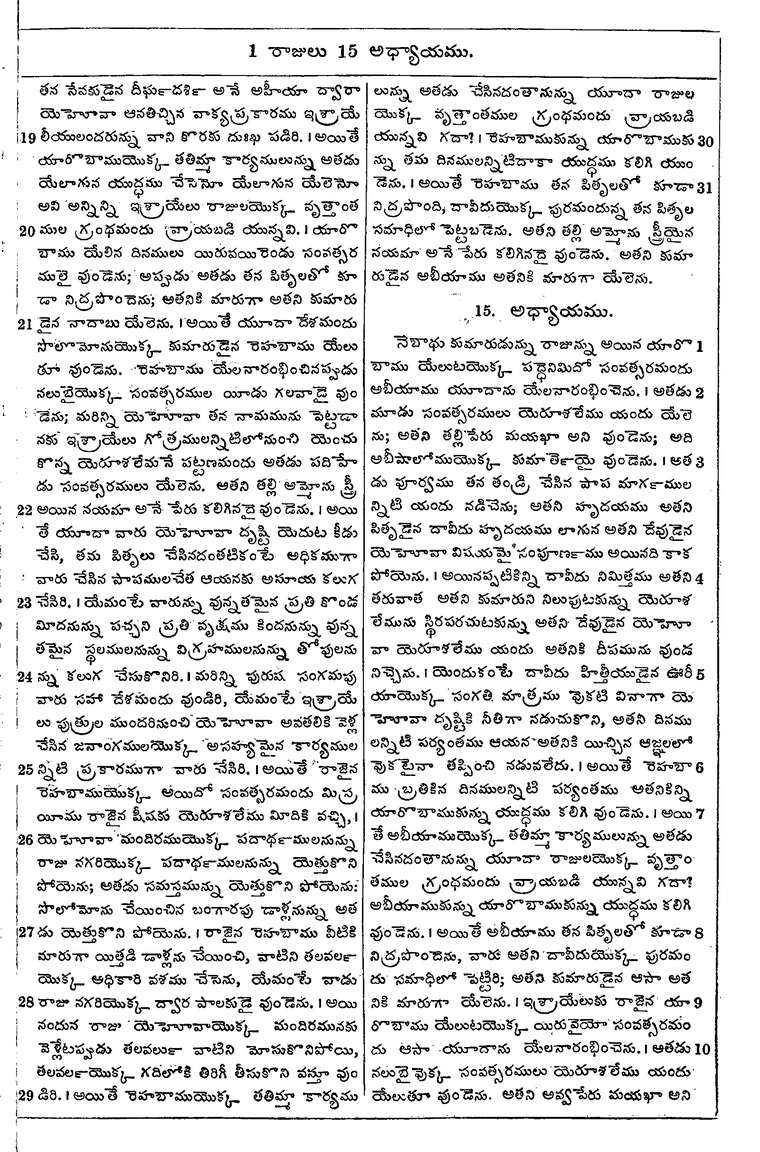 1 రాజులు 15 అధ్యాయము.
తన సేవకుడైన దీఘ౯దశి౯ అనే అహీయా ద్వారా
యెహోవా ఆనతిచ్చిన వాక్య ప్రకారము ఇశ్రాయే
19 లీయులందరున్ను వాని కొరకు దుఃఖ పడిరి. । అయితే
యారొబాముయొక్క తతిమ్మా కార్యములున్ను అతడు
యేలాగున యుద్ధము చేసెనో యేలాగున యేలెనో
అవి అన్నిన్ని ఇశ్రాయేలు రాజులయొక్క వృత్తాంత
20 ముల గ్రంథమందు వ్రాయబడి యున్నవి. । యారొ
బాము యేలిన దినములు యిరువయిరెండు సంవత్సర
ములై వుండెను; అప్పుడు అతడు తన పితృలతో కూ
డా నిద్రపొందెను; అతనికి మారుగా అతని కుమారు
21 డైన నాదాబు యేలెను. । అయితే యూదా దేశమందు
సొలొమోనుయొక్క కుమారుడైన రెహబాము యేలు
తూ వుండెను. రెహబాము యేలనారంభించినప్పుడు
నలుబైయొక్క సంవత్సరముల యీడు గలవాడై వుం
డెను; మరిన్ని యెహోవా తన నామమును పెట్టడా
నకు ఇశ్రాయేలు గోత్రములన్నిటిలోనుంచి యెంచు
కొన్న యెరూశలేమనే పట్టణమందు అతడు పదిహే
డు సంవత్సరములు యేలెను. ఆతని తల్లి అమ్మోను స్త్రీ
22 అయిన నయమా అనే పేరు కలిగినదై వుండెను. । అయి
తే యూదా వారు యెహోవా దృష్టి యెదుట కీడు
చేసి, తమ పితృలు చేసినదంతటికంటే అధికముగా
వారు చేసిన పాపములచేత ఆయనకు అసూయ కలుగ
23 చేసిరి. । యేమంటే వారున్ను వున్నతమైన ప్రతి కొండ
మీదనున్ను పచ్చని ప్రతి వృక్షము కిందనున్ను వున్న
తమైన స్థలములనున్ను విగ్రహములనున్ను తోపులను
24 న్ను కలుగ చేసుకొనిరి. । మరిన్ని పురుష సంగమపు
వారు సహా దేశమందు వుండిరి, యేమంటే ఇశ్రాయే
లు పుత్రుల ముందరినుంచి యెహోవా అవతలికి వెళ్ల
చేసిన జనాంగములయొక్క అసహ్యమైన కార్యముల
25 న్నిటి ప్రకారముగా వారు చేసిరి. । అయితే రాజైన
రెహబాముయొక్క అయిదో సంవత్సరమందు మిస్ర
యీము రాజైన షీషకు యెరూశలేము మీదికి వచ్చి, ।
26 యెహోవా మందిరముయొక్క పదాథ౯ములనున్ను
రాజు నగరియొక్క పదాథ౯ములనున్ను యెత్తుకొని
పోయెను; అతడు సమస్తమున్ను యెత్తుకొని పోయెను:
సొలొమోను చేయించిన బంగారపు డాళ్లనున్ను అత
27 డు యెత్తుకొని పోయెను. । రాజైన రెహబాము వీటికి
మారుగా యిత్తడి డాళ్లను చేయించి, వాటిని తలవల౯
యొక్క అధికారి వశము చేసెను, యేమంటే వాడు
28 రాజు నగరియొక్క ద్వార పాలకుడై వుండెను. । అయి
నందున రాజు యెహోవాయొక్క మందిరమునకు
వెళ్లేటప్పుడు తలవలు౯ వాటిని మోసుకొనిపోయి,
తలవల౯యొక్క గదిలోకి తిరిగీ తీసుకొని వస్తూ వుం
29 డిరి. । అయితే రెహబాముయొక్క తతిమ్మా కార్యము
లున్ను అతడు చేసినదంతానున్ను యూదా రాజుల
యొక్క వృత్తాంతముల గ్రంథమందు వ్రాయబడి
యున్నవి గదా? । రెహబాముకున్ను యారొబాముకు 30
న్ను తమ దినములన్నిటిదాకా యుద్ధము కలిగి యుం
డెను. । అయితే రెహబాము తన పితృలతో కూడా 31
నిద్రపొంది, దావీదుయొక్క పురమందున్న తన పితృల
సమాధిలో పెట్టబడెను. అతని తల్లి అమ్మోను స్త్రీయైన
నయమా అనే పేరు కలిగినదై వుండెను. అతని కుమా
రుడైన అబీయాము అతనికి మారుగా యేలెను.
15. అధ్యాయము.
నెబాథు కుమారుడున్ను రాజున్ను అయిన యారొ 1
బాము యేలుటయొక్క పద్ధెనిమిదో సంవత్సరమందు
అబీయాము యూదాను యేలనారంభించెను. । అతడు 2
మూడు సంవత్సరములు యెరూశలేము యందు యేలె
ను; అతని తల్లిపేరు మయఖా అని వుండెను; అది
అబీషాలోముయొక్క కుమాతె౯యై వుండెను. । అత 3
డు పూర్వము తన తండ్రి చేసిన పాప మాగ౯ముల
న్నిటి యందు నడిచెను; అతని హృదయము అతని
పితృడైన దావీదు హృదయము లాగున అతని దేవుడైన
యెహోవా విషయమై సంపూణ౯ము అయినది కాక
పోయెను. । అయినప్పటికిన్ని దావీదు నిమిత్తము అతని 4
తరువాత అతని కుమారుని నిలుపుటకున్ను యెరూశ
లేమును స్థిరపరచుటకున్ను అతని దేవుడైన యెహో
వా యెరూశలేము యందు అతనికి దీపమును వుండ
నిచ్చెను. । యెందుకంటే దావీదు హిత్తీయుడైన ఊరీ 5
యాయొక్క సంగతి మాత్రము వొకటి వినాగా యె
హోవా దృష్టికి నీతిగా నడుచుకొని, అతని దినము
లన్నిటి పర్యంతము ఆయన అతనికి యిచ్చిన ఆజ్ఞలలో
వొకటైనా తప్పించి నడువలేదు. । అయితే రెహబా 6
ము బ్రతికిన దినములన్నిటి పర్యంతము అతనికిన్ని
యారొబాముకున్ను యుద్ధము కలిగి వుండెను. । అయి 7
తే అబీయాముయొక్క తతిమ్మా కార్యములున్ను అతడు
చేసినదంతానున్ను యూదా రాజులయొక్క వృత్తాం
తముల గ్రంథమందు వ్రాయబడి యున్నవి గదా?
అబీయాముకున్ను యారొబాముకున్ను యుద్ధము కలిగి
వుండెను. । అయితే అబీయాము తన పితృలతో కూడా 8
నిద్రపొందెను, వారు అతని దావీదుయొక్క పురమం
దు సమాధిలో పెట్టిరి; అతని కుమారుడైన ఆసా అత
నికి మారుగా యేలెను. । ఇశ్రాయేలుకు రాజైన యా 9
రొబాము యేలుటయొక్క యిరువైయో సంవత్సరమం
దు ఆసా యూదాను యేలనారంభించెను. । అతడు 10
నలుబై వొక్క సంవత్సరములు యెరూశలేము యందు
యేలుతూ వుండెను. అతని అవ్వపేరు మయఖా అని